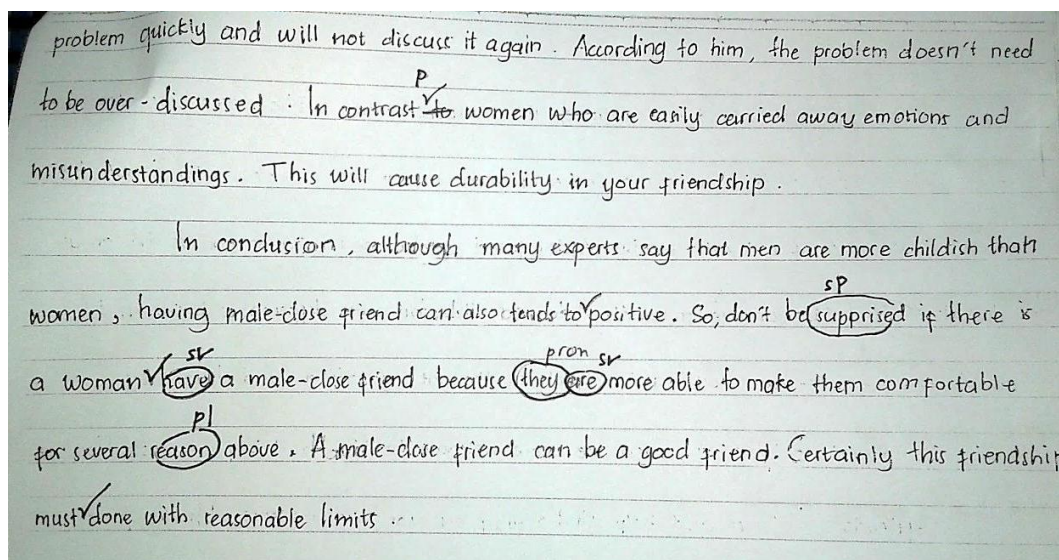 problem quickly and will not discuss it again. According to him, the problem doesn't need
P
to be over-discussed. In contrast to women who are easily carried away emotions and
misunderstandings. This will cause durability in your friendship.
In conclusion, although many experts say that men are more childish than
sp
women, having male-close friend can also tends to positive. So, don't be supprised if there is
sv pron sv
a woman have a male-close friend because they are more able to make them comfortable
pl
for several reason above. A male-close friend can be a good friend. Certainly this friendship
must done with reasonable limits